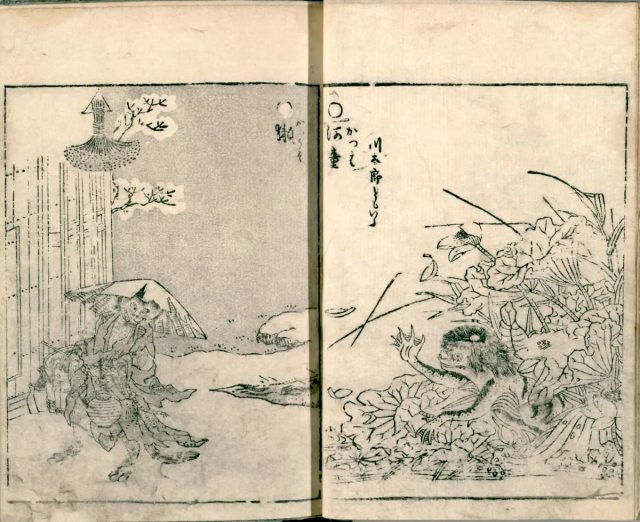 河童
かつは
川太郎ともいふ
獺
かわうそ